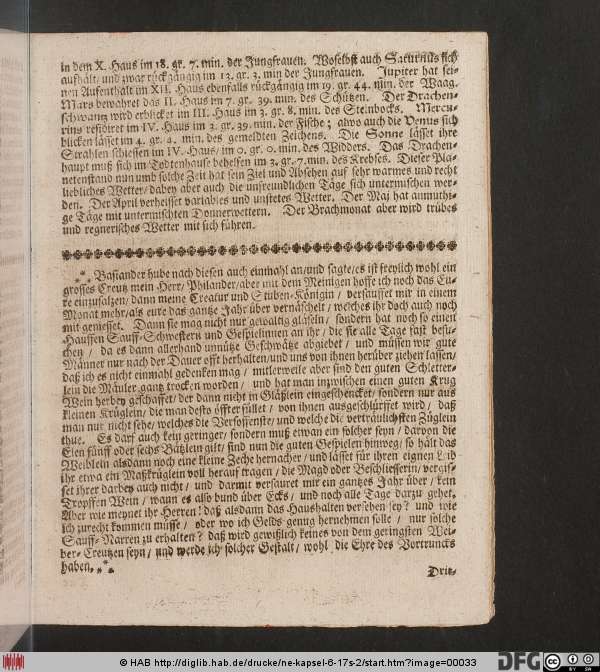 in dem X. Haus im 18. gr. 7. min. der Jungfrauen. Woselbst auch Saturnus sich
aufhält, und zwar rückgängig im 13. gr. 3. min der Jungfrauen. Jupiter hat sei-
nen Aufenthalt im XII. Haus ebenfalls rückgängig im 19. gr. 44. min. der Waag.
Mars bewahret das II. Haus im 7. gr. 39. min. des Schützen. Der Drachen-
schwantz wird erblicket im III. Haus im 3. gr. 8. min. des Steinbocks. Mercu-
rius resfdiret im IV. Haus im 3. gr. 39. min. der Fische; allwo auch die Venus sich
blicken lässet im 4. gr. 2. min. des gemeldten Zeichens. Die Sonne lässet ihre
Strahlen schiessen im IV. Haus/ im 0. gr. 0. min. des Widders. Das Drachen-
haupt muß sich im Todtenhause behelfen im 3. gr. 7. min. des Krebses. Dieser Pla-
netenstand nun umb solche Zeit hat sein Ziel und Absehen auf sehr warmes und recht
liebliches Wetter/ dabey aber auch die unfreundlichen Tage sich untermischen wer-
den. Der April verheisset variables und unstetes Wetter. Der Maj hat anmuthi-
ge Täge mit untermischten Donnerwettern. Der Brachmonat aber wird trübes
und regnerisches Wetter mit sich führen.
*** Bastander hube nach diesen auch einmahl an/und sagte/es ist freylich wohl ein
grosses Creutz mein Herr/ Philander/aber mit dem Meinigen hoffe ich noch das Eu-
re einzusaltzen/ dann meine Creatur und Stuben-Königin / versauffet mir in einem
Monat mehr/als eure das gantze Jahr über vernäschelt/ welches ihr doch auch noch
mit geniesset. Dann sie mag nicht nur gewaltig gläseln/ sondern hat noch so einen
Hauffen Sauff-Schwestern und Gespielinnen an ihr/ die sie alle Tage fast besu-
chen / da es dann allerhand unnütze Geschwätze abgiebet / und müssen wir gute
Männer nur nach der Dauer offt herhalten/und uns von ihnen herüber ziehen lassen/
daß ich es nicht einmahl gedencken mag / mitlerweile aber sind den guten Schletter-
lein die Mäuler gantz trocken worden / und hat man inzwischen einen guten Krug
Wein herbey geschaffet/der dann nicht in Gläßlein eingeschencket/ sondern nur aus
kleinen Krüglein/ die man desto öffter füllet / von ihnen ausgeschlürffet wird / daß
man nur nicht sehe/ welches die Versoffenste/ und welche die vertraulichsten Züglein
thue. Es darf auch kein geringer/ sondern muß etwan ein solcher seyn / darvon die
Elen fünff oder sechs Bätzlein gilt/ sind nun die guten Gespielen hinweg/ so hält das
Weiblein alsdann noch eine kleine Zeche hernacher/ und lässet für ihren eignen Leib
ihr etwa ein Maßkrüglein voll herauf tragen / die Magd oder Beschliesserin/ vergis-
set ihrer darbey auch nicht/ und darmit versauret mir ein gantzes Jahr über / kein
Tropffen Wein / wann es also bund über Ecks / und noch alle Tage darzu gehet.
Aber wie meynet ihr Herren! daß alsdann das Haushalten versehen sey? und wie
ich zurecht kommen müsse / oder wo ich Gelds genug hernehmen solle / nur solche
Sauff-Narren zu erhalten? daß wird gewißlich keines von dem geringsten Wei-
ber-Creutzen seyn / und werde ich solcher Gestalt / wohl die Ehre des Vortruncks
haben. ***
Drit-
© HAB http://diglib.hab.de/drucke/ne-kapsel-6-17s-2/start.htm?image=00033
DFG
CC BY SA